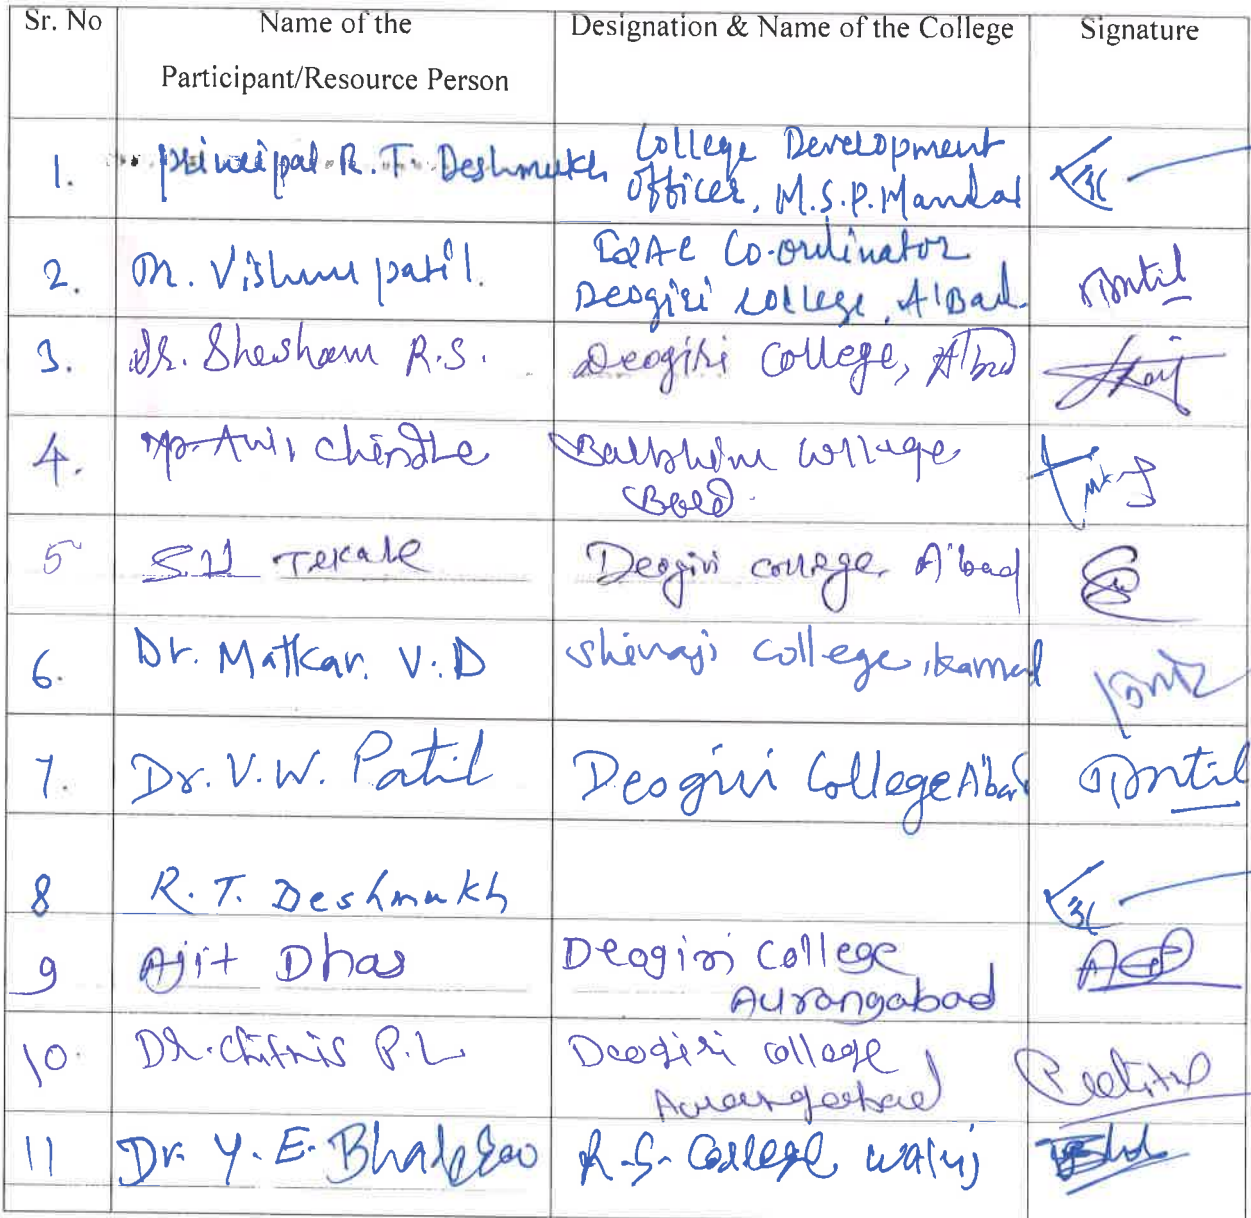 Sr. No Name of the Designation & Name of the College Signature
Participant/Resource Person
1. principal R. T. Deshmukh College Development
Officer, M.S.P. Mandal
2. Dr. Vishnu patil. IQAC Co-ordinator
Deogiri College, A'Bad.
3. Dr. Shesham R.S. Deogiri College, A'bad
4. Chindhe Balbhim College
Beed.
5 Tekale Deogiri college, A'bad
6. Dr. Matkar. V.D Shivaji College,
7. Dr. V.W. Patil Deogiri College A'bad
8 R. T. Deshmukh
9 Ajit Dhas Deogiri College
Aurangabad
10. Dr. Chitnis P.L Deogiri College
Aurangabad
11 Dr. Y. E. R.S. College